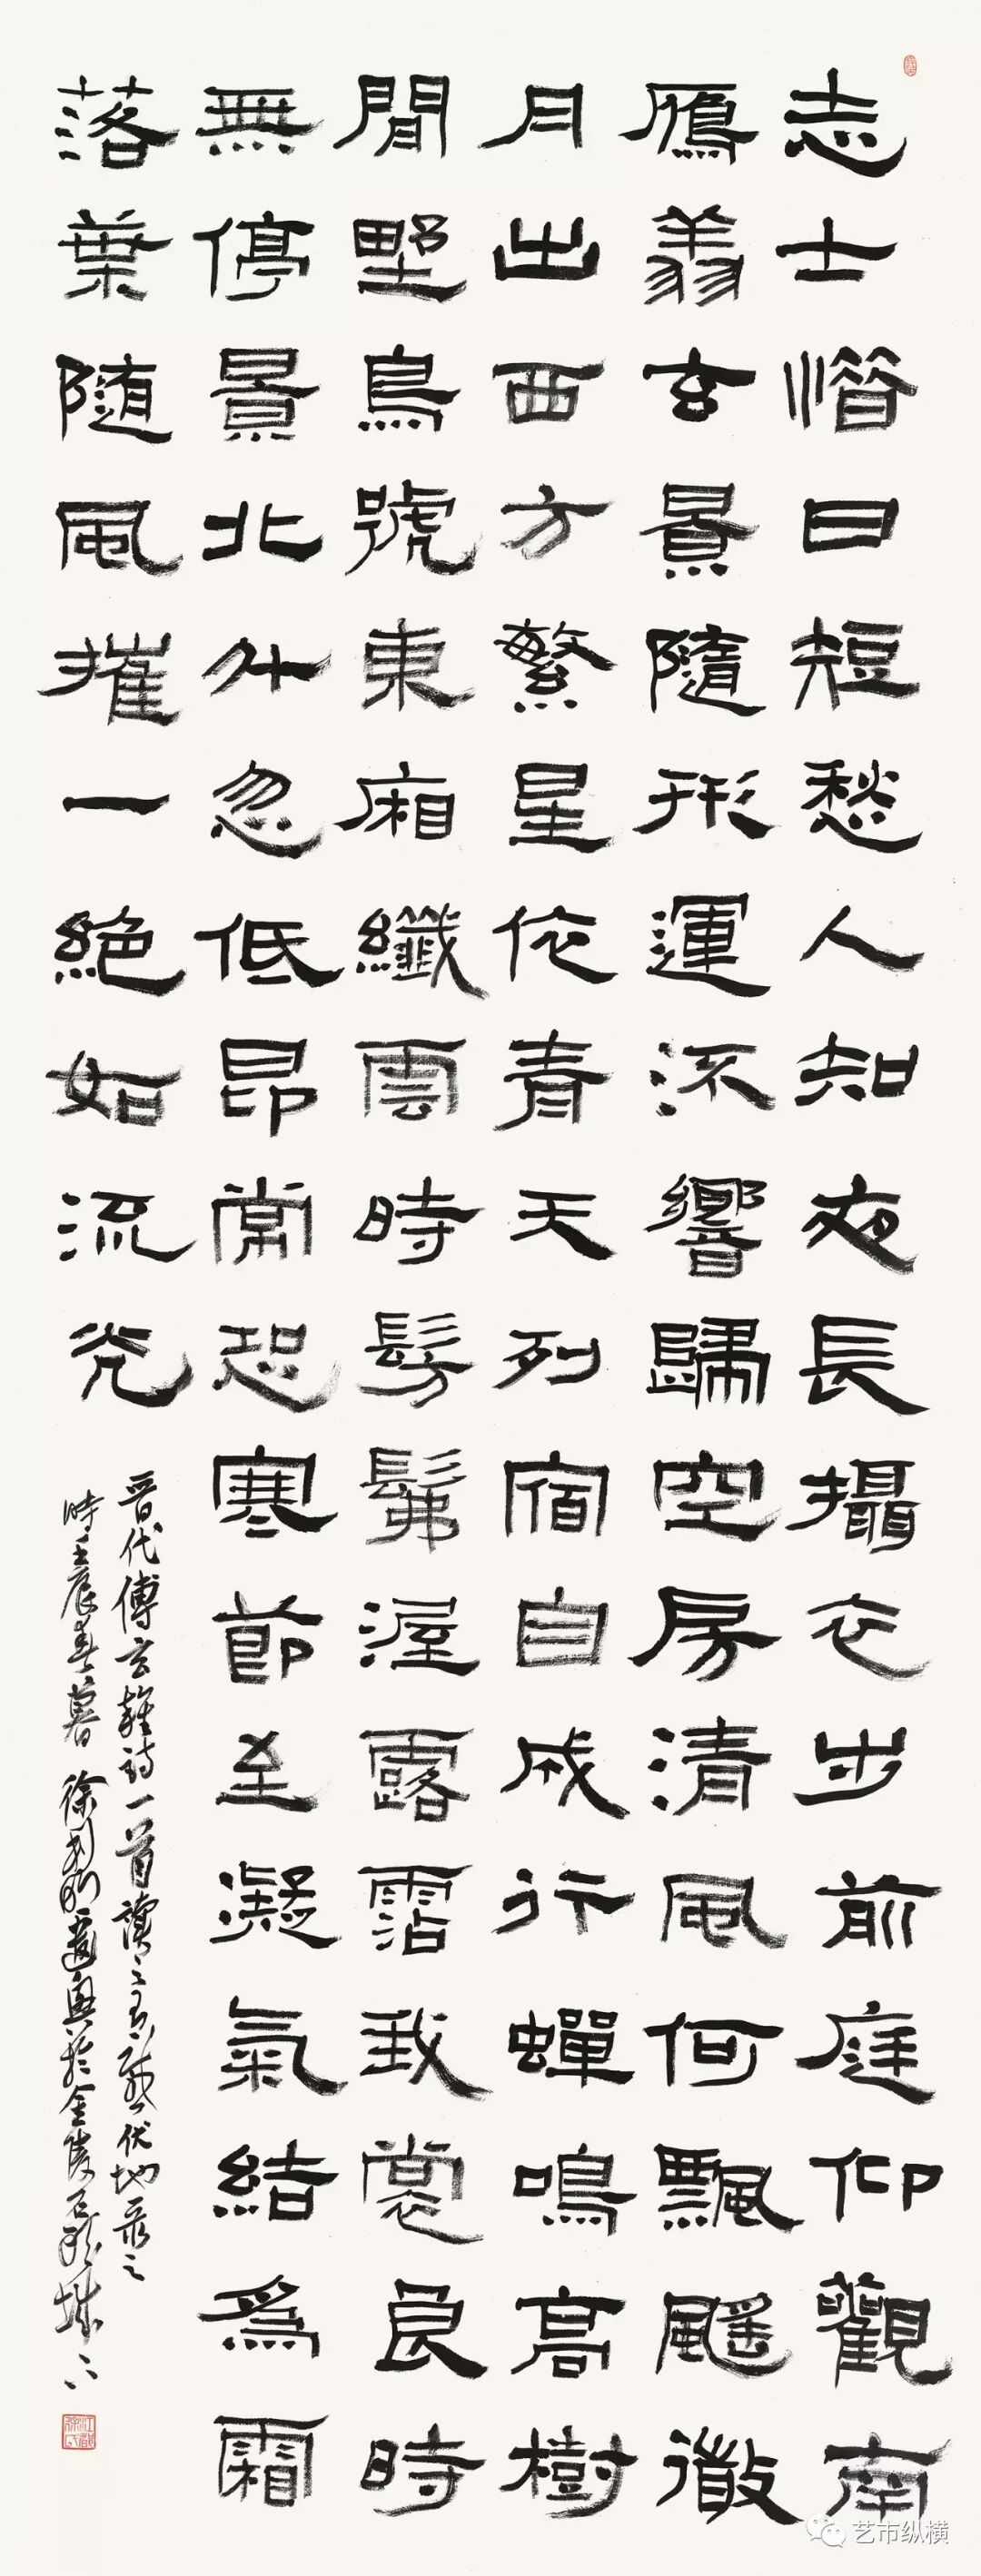 志士惜日短愁人知夜長攝衣步前庭仰觀南
鴈翔玄景隨形運流響歸空房清風何飄颻微
月出西方繁星依青天列宿自成行蟬鳴高樹
間野鳥號東廂纖雲時髣髴渥露霑我裳良時
無停景北斗忽低昂常恐寒節至凝氣結爲霜
落葉隨風摧一絕如流光
晉代傅玄雜詩一首讀之伏地錄之
時壬辰春暮徐利明適興於金陵石頭城下
江都徐氏
艺市纵横